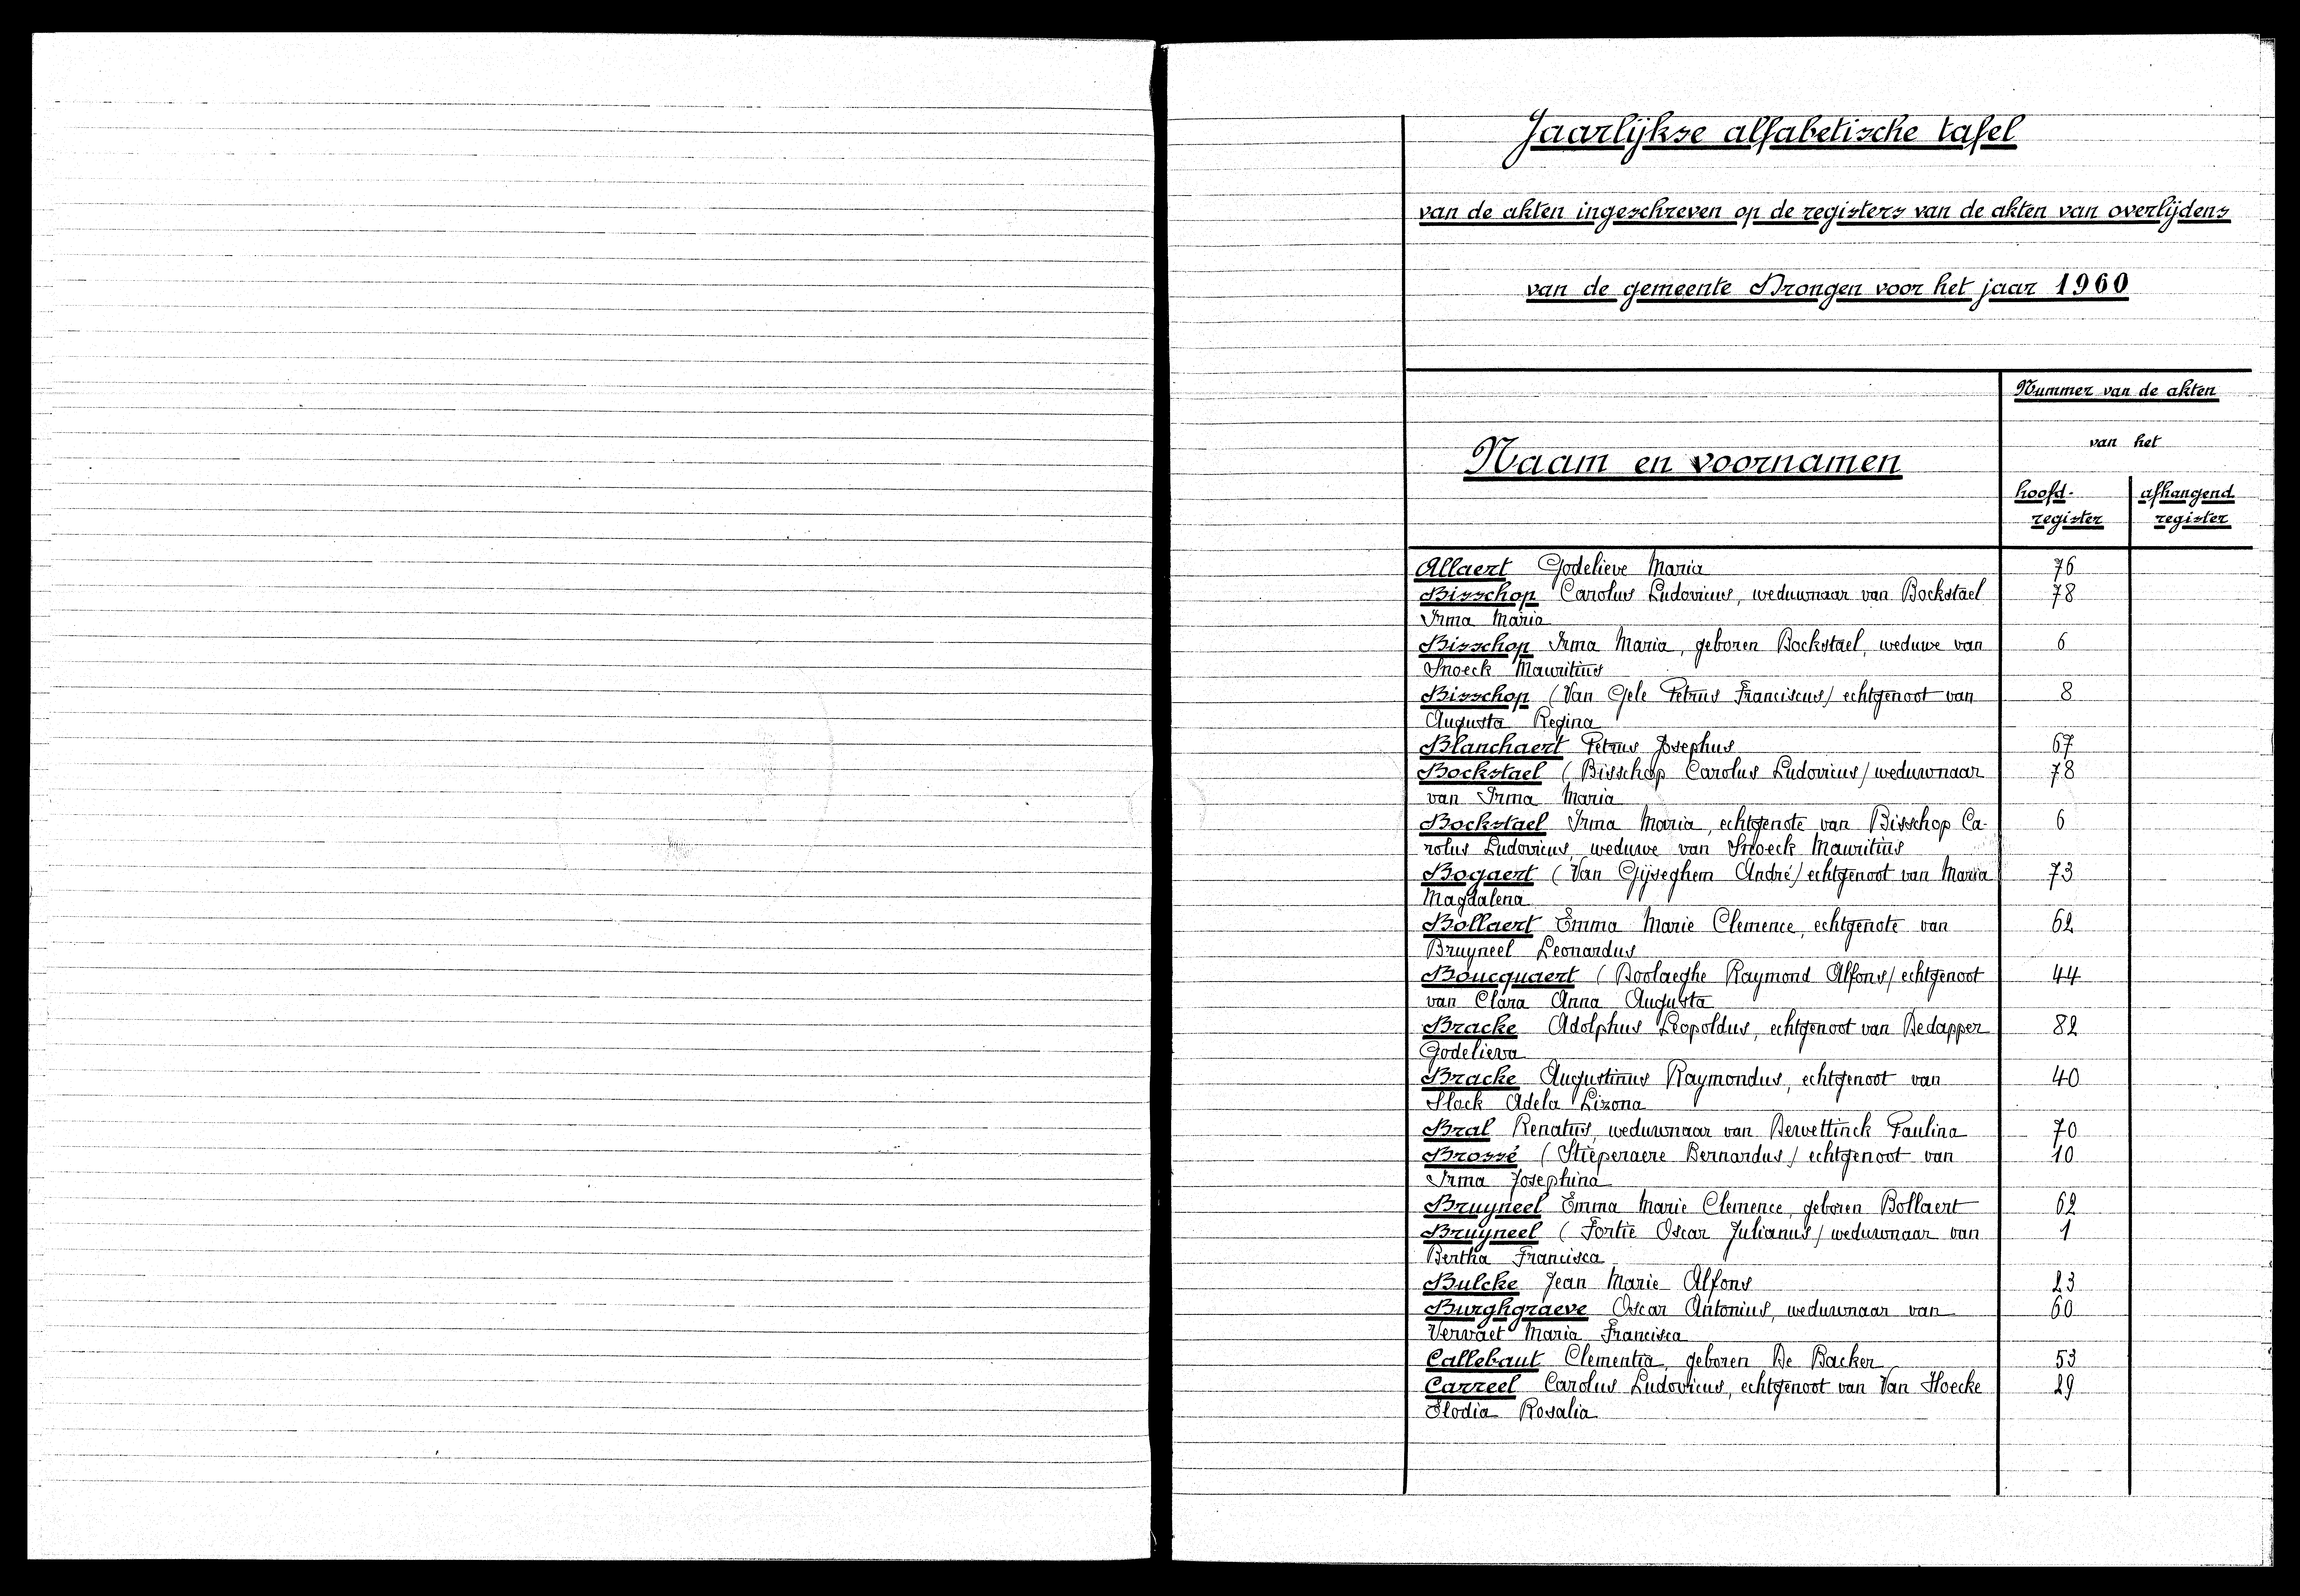 Jaarlijkse alfabetische tafel
van de akten ingeschreven op de registers van de akten van overlijdens
van de gemeente Drongen voor het jaar 1960
Nummer van de akten
van het
Naam en voornamen
hoofd- afhangend
register register
Allaert Godelieve Maria 76
Bisschop Carolus Ludovicus, weduwnaar van Bockstael 78
Irma Maria
Bisschop Irma Maria, geboren Bockstael, weduwe van 6
Snoeck Mauritius
Bisschop (Van Gele Petrus Franciscus) echtgenoot van 8
Augusta Regina
Blanchaert Petrus Josephus 67
Bockstael (Bisschop Carolus Ludovicus) weduwnaar 78
van Irma Maria
Bockstael Irma Maria, echtgenote van Bisschop Ca- 6
rolus Ludovicus, weduwe van Snoeck Mauritius
Bogaert (Van Gijseghem André) echtgenoot van Maria 73
Magdalena
Bollaert Emma Marie Clemence, echtgenote van 62
Bruyneel Leonardus
Boucquaert (Boolaeghe Raymond Alfons) echtgenoot 44
van Clara Anna Augusta
Bracke Adolphus Leopoldus, echtgenoot van Dedapper 82
Godelieva
Bracke Augustinus Raymondus, echtgenoot van 40
Slock Adela Lizona
Bral Renatus, weduwnaar van Dewettinck Paulina 70
Brossé (Stieperaere Bernardus) echtgenoot van 10
Irma Josephina
Bruyneel Emma Marie Clemence, geboren Bollaert 62
Bruyneel (Fortie Oscar Julianus) weduwnaar van 1
Bertha Francisca
Bulcke Jean Marie Alfons 23
Burghgraeve Oscar Antonius, weduwnaar van 60
Vervaet Maria Francisca
Callebaut Clementia, geboren De Backer 53
Carreel Carolus Ludovicus, echtgenoot van Van Hoecke 29
Elodia Rosalia